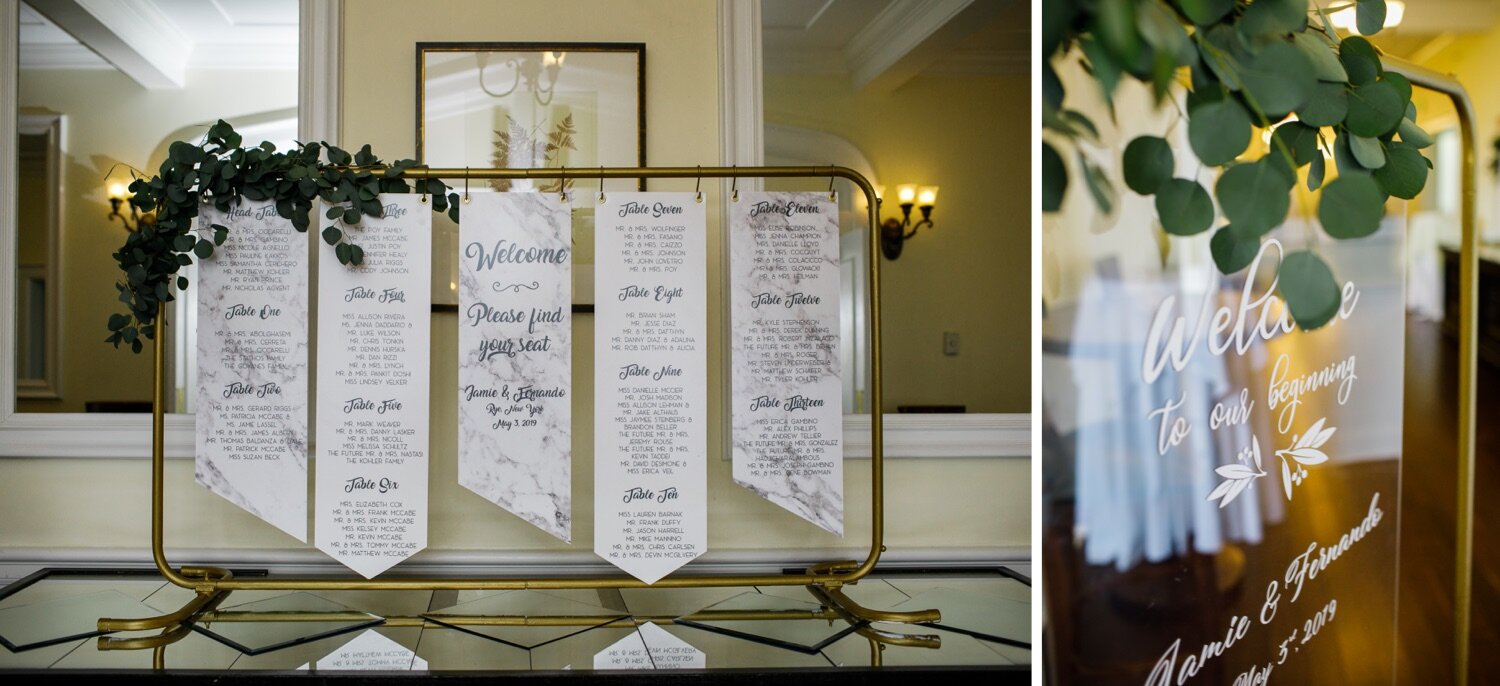 Head Table
MR. & MRS. CICCARELLI
MR. & MRS. GAMBINO
MISS NICOLE AGNELLO
MISS PAULINE KAKKOS
MISS SAMANTHA CERICHERO
MR. MATTHEW KOHLER
MR. RYAN PRINCE
MR. NICHOLAS
Table One
MR. & MRS. ABOLGHASEMI
MR. & MRS. CERRETA
MR. & MRS. CICCARELLI
THE FAMILY
THE FAMILY
Table Two
MR. & MRS. GERARD RIGGS
MS. PATRICIA MCCABE &
MS. JAMIE LASSEL
MR. & MRS. JAMES ALBERT
MR. THOMAS BALDANZA &
MR. PATRICK MCCABE
MISS SUZAN BECK
Three
THE POY FAMILY
MR. JAMES MCCABE
JUSTIN POY
JENNIFER HEALY
JULIA RIGGS
MR. CODY JOHNSON
Table Four
MISS ALLISON RIVERA
MS. JENNA DADDARIO &
MR. LUKE WILSON
MR. CHRIS TONKIN
MR. DENNIS HURSKA
MR. DAN RIZZI
MR. & MRS. LYNCH
MR. & MRS. PANKIT DOSHI
MISS LINDSEY VELKER
Table Five
MR. MARK WEAVER
MR. & MRS. DANNY LASKER
MR. & MRS. NICOLL
MISS MELISSA SCHULTZ
THE FUTURE MR. & MRS. NASTASI
THE KOHLER FAMILY
Table Six
MRS. ELIZABETH COX
MR. & MRS. FRANK MCCABE
MR. & MRS. KEVIN MCCABE
MISS KELSEY MCCABE
MR. & MRS. TOMMY MCCABE
MR. MATTHEW MCCABE
Welcome
Please find
your seat
Jamie & Fernando
Rye, New York
May 3, 2019
Table Seven
MR. & MRS. WOLFINGER
MR. & MRS. FASANO
MR. & MRS. CAIZZO
MR. & MRS. JOHNSON
MR. JOHN LOVETRO
MR. & MRS. POY
Table Eight
MR. BRIAN SHAM
MR. JESSE DIAZ
MR. & MRS. DATTHYN
MR. DANNY DIAZ & ADALINA
MR. ROB DATTHYN & ALICIA
Table Nine
MISS DANIELLE MCCIER
MR. JOSH MADSON
MISS ALLISON LEHMAN &
MR. JAKE ALTHAUS
MISS JAYMEE STENBERG &
BRANDON BELLER
THE FUTURE MR. & MRS.
JEREMY ROUSE
THE FUTURE MR. & MRS.
KEVIN TADDEI
MR. DAVID DESIMONE &
MISS ERICA VEIL
Table Ten
MISS LAUREN BARNAK
MR. FRANK DUFFY
MR. JASON HARRELL
MR. MIKE MANNINO
MR. & MRS. CHRIS CARLSEN
MR. & MRS. DEVIN MCGILVERY
Table Eleven
MISS ELISE ROBINSON
MISS JENNA CHAMPION
MRS. DANIELLE LLOYD
MR. & MRS. COCQUET
MR. & MRS. COLACICCO
MR. & MRS. GLOWACKI
MR. & MRS. HEILMAN
Table Twelve
MR. KYLE STEPHENSON
MR. & MRS. DEREK DUNNING
MR. & MRS. ROBERT INZALACO
THE FUTURE MR. & MRS.
MR. & MRS. ROGER
MR. STEVEN UNDERWISER &
MR. MATTHEW SCHAFER
MR. TYLER KOHLER
Table Thirteen
MISS ERICA GAMBINO
MR. ALEX PHILLIPS
MR. ANDREW TELLIER
THE FUTURE MR. & MRS. GONZALEZ
THE FUTURE MR. & MRS.
HADJICHARALAMBOUS
MR. & MRS. JOSEPH GAMBINO
MR. & MRS. GENE BOWMAN
Welcome
to our beginning
Jamie & Fernando
May 3rd, 2019